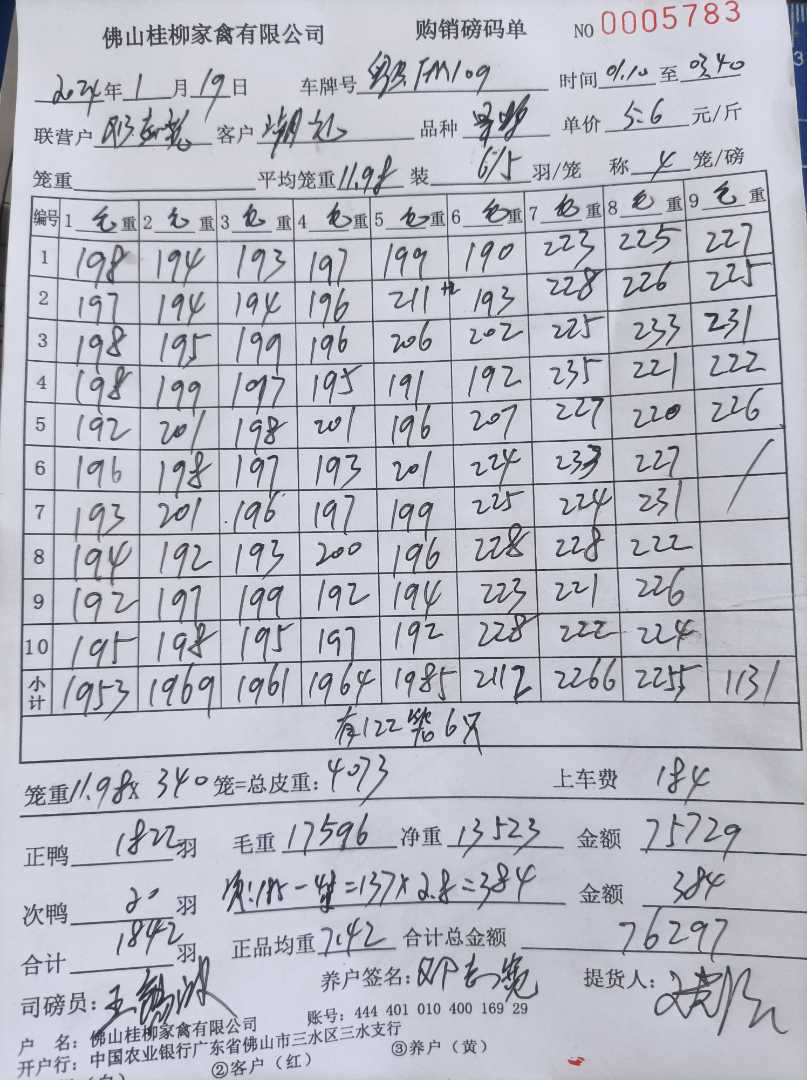 佛山桂柳家禽有限公司 购销磅码单 NO 0005783
2024年 1 月 19 日 车牌号 FM109 时间 01.10 至 03.40
联营户 客户 品种 单价 5.6 元/斤
笼重 平均笼重 11.98 装 6/5 羽/笼 称 4 笼/磅
编号 1 毛 重 2 毛 重 3 毛 重 4 毛 重 5 毛 重 6 毛 重 7 毛 重 8 毛 重 9 毛 重
1 198 194 193 197 199 190 223 225 227
2 197 194 194 196 211 193 228 226 225
3 198 195 199 196 206 202 225 233 231
4 198 199 197 195 191 192 235 221 222
5 192 201 198 201 196 207 227 220 226
6 196 198 197 193 201 224 233 227 /
7 193 201 196 197 199 225 224 231
8 194 192 193 200 196 228 228 222
9 192 197 199 192 194 223 221 226
10 195 198 195 197 192 228 222 224
小计 1953 1969 1961 1964 1985 2112 2266 2255 1131
有122笼6只
笼重 11.98 × 340 笼=总皮重: 4073 上车费 184
正鸭 1822 羽 毛重 17596 净重 13523 金额 75729
次鸭 20 羽 =137×2.8=384 金额 384
合计 1842 羽 正品均重 7.42 合计总金额 76297
司磅员: 养户签名: 提货人:
户 名: 佛山桂柳家禽有限公司 账号: 444 401 010 400 169 29
开户行: 中国农业银行广东省佛山市三水区三水支行
②客户（红） ③养户（黄）